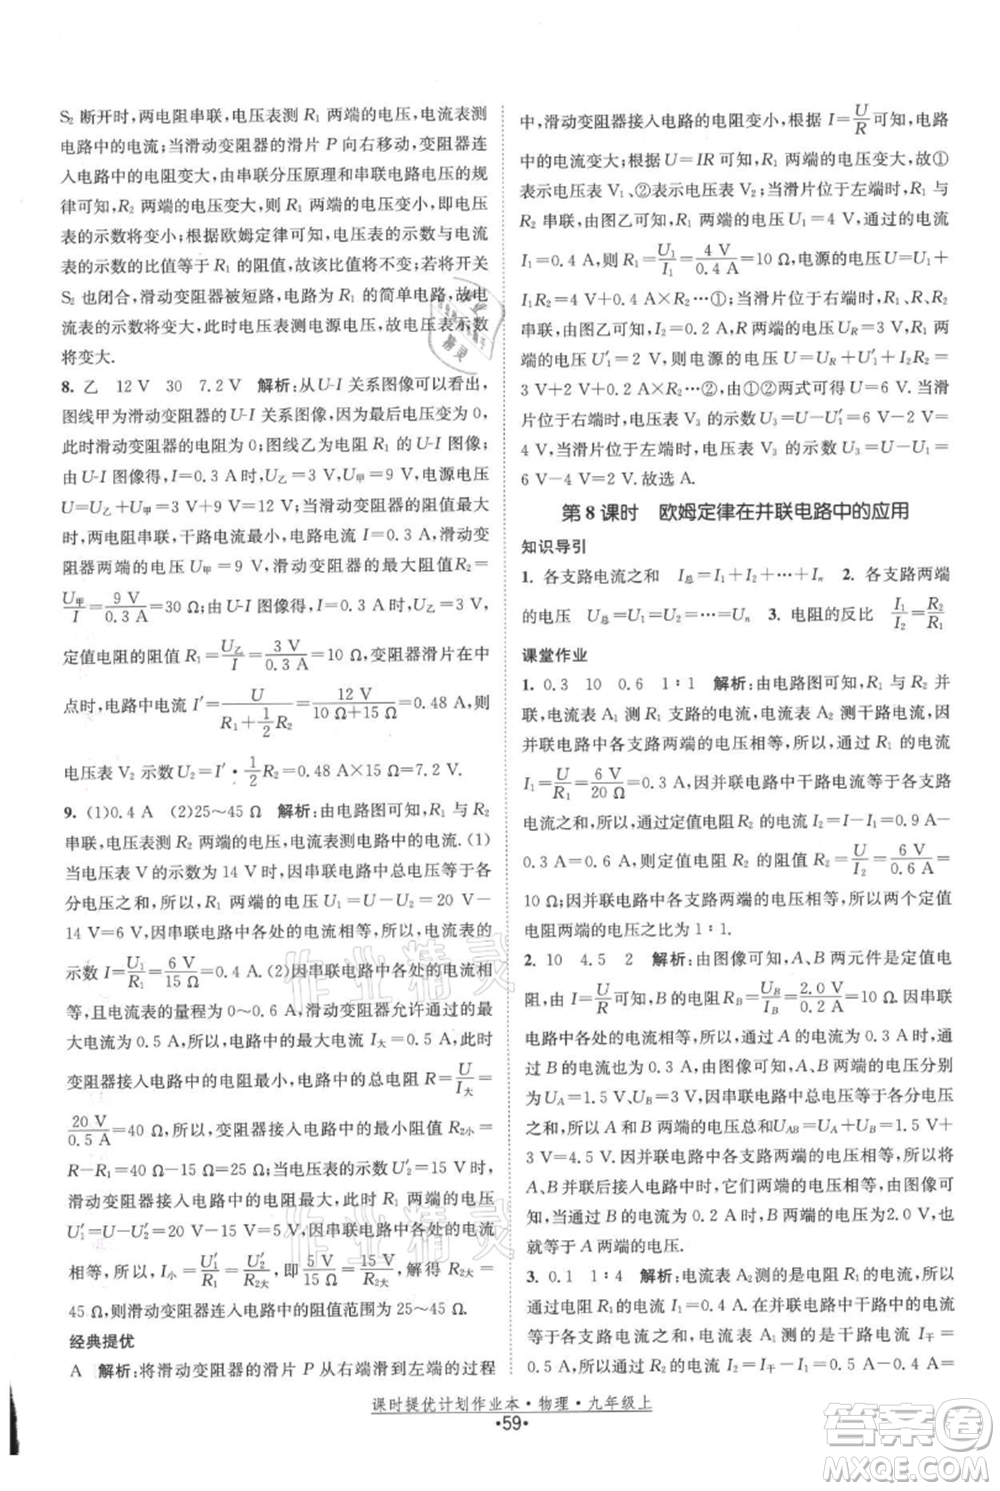 S₂ 断开时,两电阻串联,电压表测 R₁ 两端的电压,电流表测
电路中的电流;当滑动变阻器的滑片 P 向右移动,变阻器接
入电路中的电阻变大,由串联分压原理和串联电路的电压的规
律可知,R₂ 两端的电压变大,R₁ 两端的电压变小,即电压
表的示数将变小;根据欧姆定律可知,电压表的示数与电流
表的示数的比值等于 R₁ 的阻值,故该比值将不变;若再将开关
S₂ 也闭合,滑动变阻器被短路,电路为 R₁ 的简单电路,故电
流表的示数将变大,此时电压表测电源电压,电压表的示数将
将变大.
8. 乙 12 V 30 7.2 V 解析:从 U-I 关系图像可以看出,
图线甲为滑动变阻器的 U-I 关系图像,因为当电压为零时,
此时滑动变阻器的电阻为 0;图线乙为定值电阻的 U-I 关系
图像.由 U-I 图像得,I=0.3 A,U乙=3 V,U甲=9 V,电源电压
U=U乙+U甲=3 V+9 V=12 V;当滑动变阻器的阻值最大
时,电路中总电阻最大,干路电流最小,为 0.3 A,滑动变阻
器两端的电压为 U甲=9 V,所以滑动变阻器的最大电阻 R₂=
U甲/I=9 V/0.3 A=30 Ω;由 U-I 图像得,U乙=3 V,I=0.3 A,
定值电阻的电阻 R₁=U乙/I=3 V/0.3 A=10 Ω,变阻器滑片在中
点时,电路中电流 I′=U/(R₁+½R₂)=12 V/(10 Ω+15 Ω)=0.48 A,
电压表 V₂ 示数 U₂=I′·½R₂=0.48 A×15 Ω=7.2 V.
9. (1)0.4 A (2)25~45 Ω 解析:由电路图可知,R₁ 与 R₂
串联,电压表测 R₂ 两端的电压,电流表测电路中的电流.(1)
当电压表的示数为 14 V 时,因串联电路中总电压等于各
分电压之和,所以,R₁ 两端的电压 U₁=U-U₂=20 V-
14 V=6 V,因串联电路中各处的电流相等,所以,电流表
的示数 I=U₁/R₁=6 V/15 Ω=0.4 A.(2)因串联电路中各处的电流相
等,且电流表的量程为 0~0.6 A,滑动变阻器允许通过的最
大电流为 0.5 A,所以,电路中的最大电流 I大=0.5 A,此时
变阻器接入电路中的电阻最小,电路中的总电阻 R=U/I大=
20 V/0.5 A=40 Ω,所以,变阻器接入电路中的最小阻值 R₂小=
R-R₁=40 Ω-15 Ω=25 Ω;当电压表的示数 U₂′=15 V 时,
滑动变阻器接入电路中的电阻最大,此时 R₁ 两端的电压
U₁′=U-U₂′=20 V-15 V=5 V,因串联电路中各处的电流
相等,所以,I小=U₁′/R₁=U₂′/R₂大,即:5 V/15 Ω=15 V/R₂大,解得:R₂大=
45 Ω,则滑动变阻器连入电路中的阻值范围为 25~45 Ω.
经典提优
A 解析:将滑动变阻器的滑片 P 从右端滑到左端的过程
中,滑动变阻器接入电路的电阻变小,根据 I=U/R可知,电路
中的电流变大;根据 U=IR 可知,R₁ 两端的电压变大,故①
表示电压表 V₁ 的示数的变化;当滑片位于左端时,R₁ 与
R₂ 串联,由图乙可知,R₁ 两端的电压 U₁=4 V,通过的电流
I₁=0.4 A,所以 R₁=U₁/I₁=4 V/0.4 A=10 Ω,电源的电压 U=U₁+
I₁R₂=4 V+0.4 A×R₂…①,当滑片位于右端时,R₁、R、R₂
串联,由图乙可知,I=0.2 A,R 两端的电压 UR=3 V,R₁ 两
端的电压 U₁′=2 V,则电源的电压 U=UR+U₁′+IR₂=
3 V+2 V+0.2 A×R₂…②,由①②两式可得 U=6 V.当
滑片位于右端时,电压表 V₃ 的示数 U₃=U-U₁′=6 V-
2 V=4 V;当滑片位于左端时,电压表 V₃ 的示数 U₃′=U-U₁=
6 V-4 V=2 V.故选 A.
第 8 课时 欧姆定律在并联电路中的应用
知识导引
1. 各支路电流之和 I总=I₁+I₂+…+Iₙ 2. 各支路两端
的电压 U总=U₁=U₂=…=Uₙ 3. 电阻的反比 I₁/I₂=R₂/R₁
课堂作业
1. 0.3 10 0.6 1∶1 解析:由电路图可知,R₁ 与 R₂ 并
联,电流表 A₁ 测 R₁ 支路的电流,电流表 A₂ 测干路电流,因
并联电路中各支路两端的电压相等,所以,通过 R₁ 的电流
I₁=U/R₁=6 V/20 Ω=0.3 A,因并联电路中干路电流等于各支路
电流之和,所以,通过 R₂ 的电流 I₂=I-I₁=0.9 A-
0.3 A=0.6 A,则定值电阻 R₂ 的阻值 R₂=U/I₂=6 V/0.6 A=
10 Ω,因并联电路中各支路两端的电压相等,所以两个定值
电阻两端电压之比为 1∶1.
2. 10 4.5 2 解析:由图像可知,A、B 两元件是定值电
阻,因 I=U/R,所以,电阻 RB=UB/IB=2.0 V/0.2 A=10 Ω.因串联
电路中各处的电流相等,所以,通过 A 的电流为 0.3 A 时,通
过 B 的电流也为 0.3 A,由图像可知,A、B 两端的电压分别
为 UA=1.5 V,UB=3 V,因串联电路中总电压等于各分电压
之和,所以,A、B 两端的电压总和UAB=UA+UB=1.5 V+
3 V=4.5 V.因并联电路中各支路两端的电压相等,所以,将
A、B 并联接入电路中时,它们两端的电压相等,由图像可知,
当通过 B 的电流为 0.2 A 时,B 两端的电压为2.0 V,所以,
就等于 A 两端的电压.
3. 0.1 1∶4 解析:电流表 A₂测的是通过电阻 R₁的电
流,示数为 0.4 A,即通过电阻 R₁的电流 I₁=0.4 A,R₁、R₂
并联,电流表 A₁ 测的是干路电流,示数为 0.5 A,即 I干=
0.5 A,根据并联电路中电流的关系,电阻 R₂ 的电流 I₂=I干-
课时提优计划作业本·物理·九年级上
·59·
作业精灵
作业精灵
答案圈
MXQE.COM